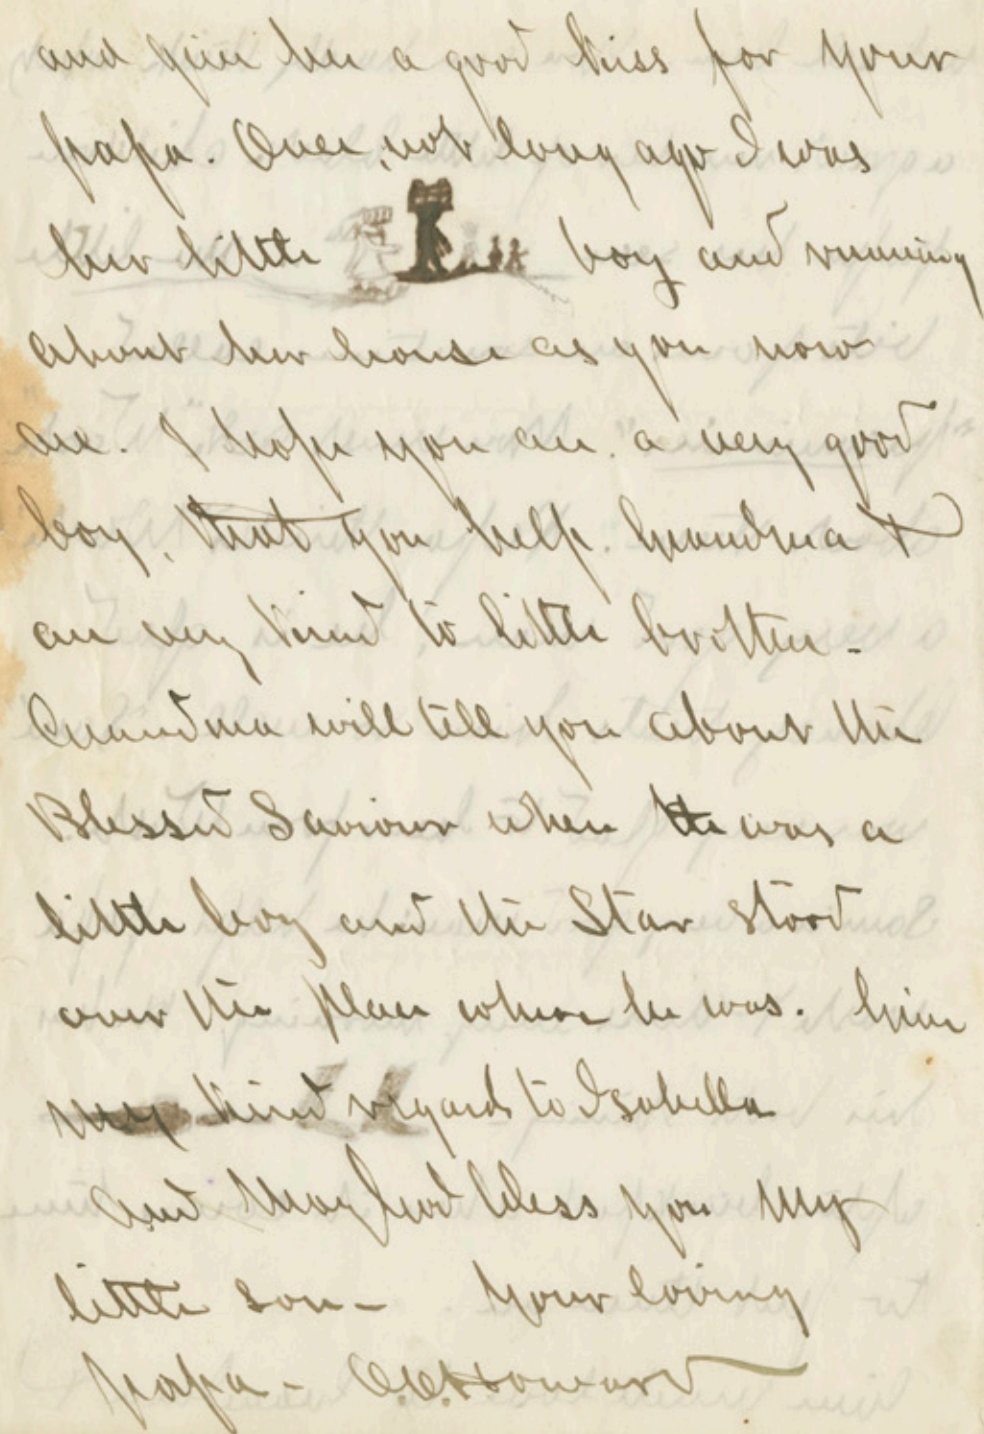 and give her a good kiss for your
papa. Once, not long ago I was
her little boy and running
about her house as you now
are. I hope you are a very good
boy, that you help Grandma &
are very kind to little brother -
Grandma will tell you about the
Blessed Saviour when He was a
little boy and the Star stood
over the place where he was. Give
my kind regards to Isabella
And May God bless you My
little son - Your loving
papa - O.O. Howard